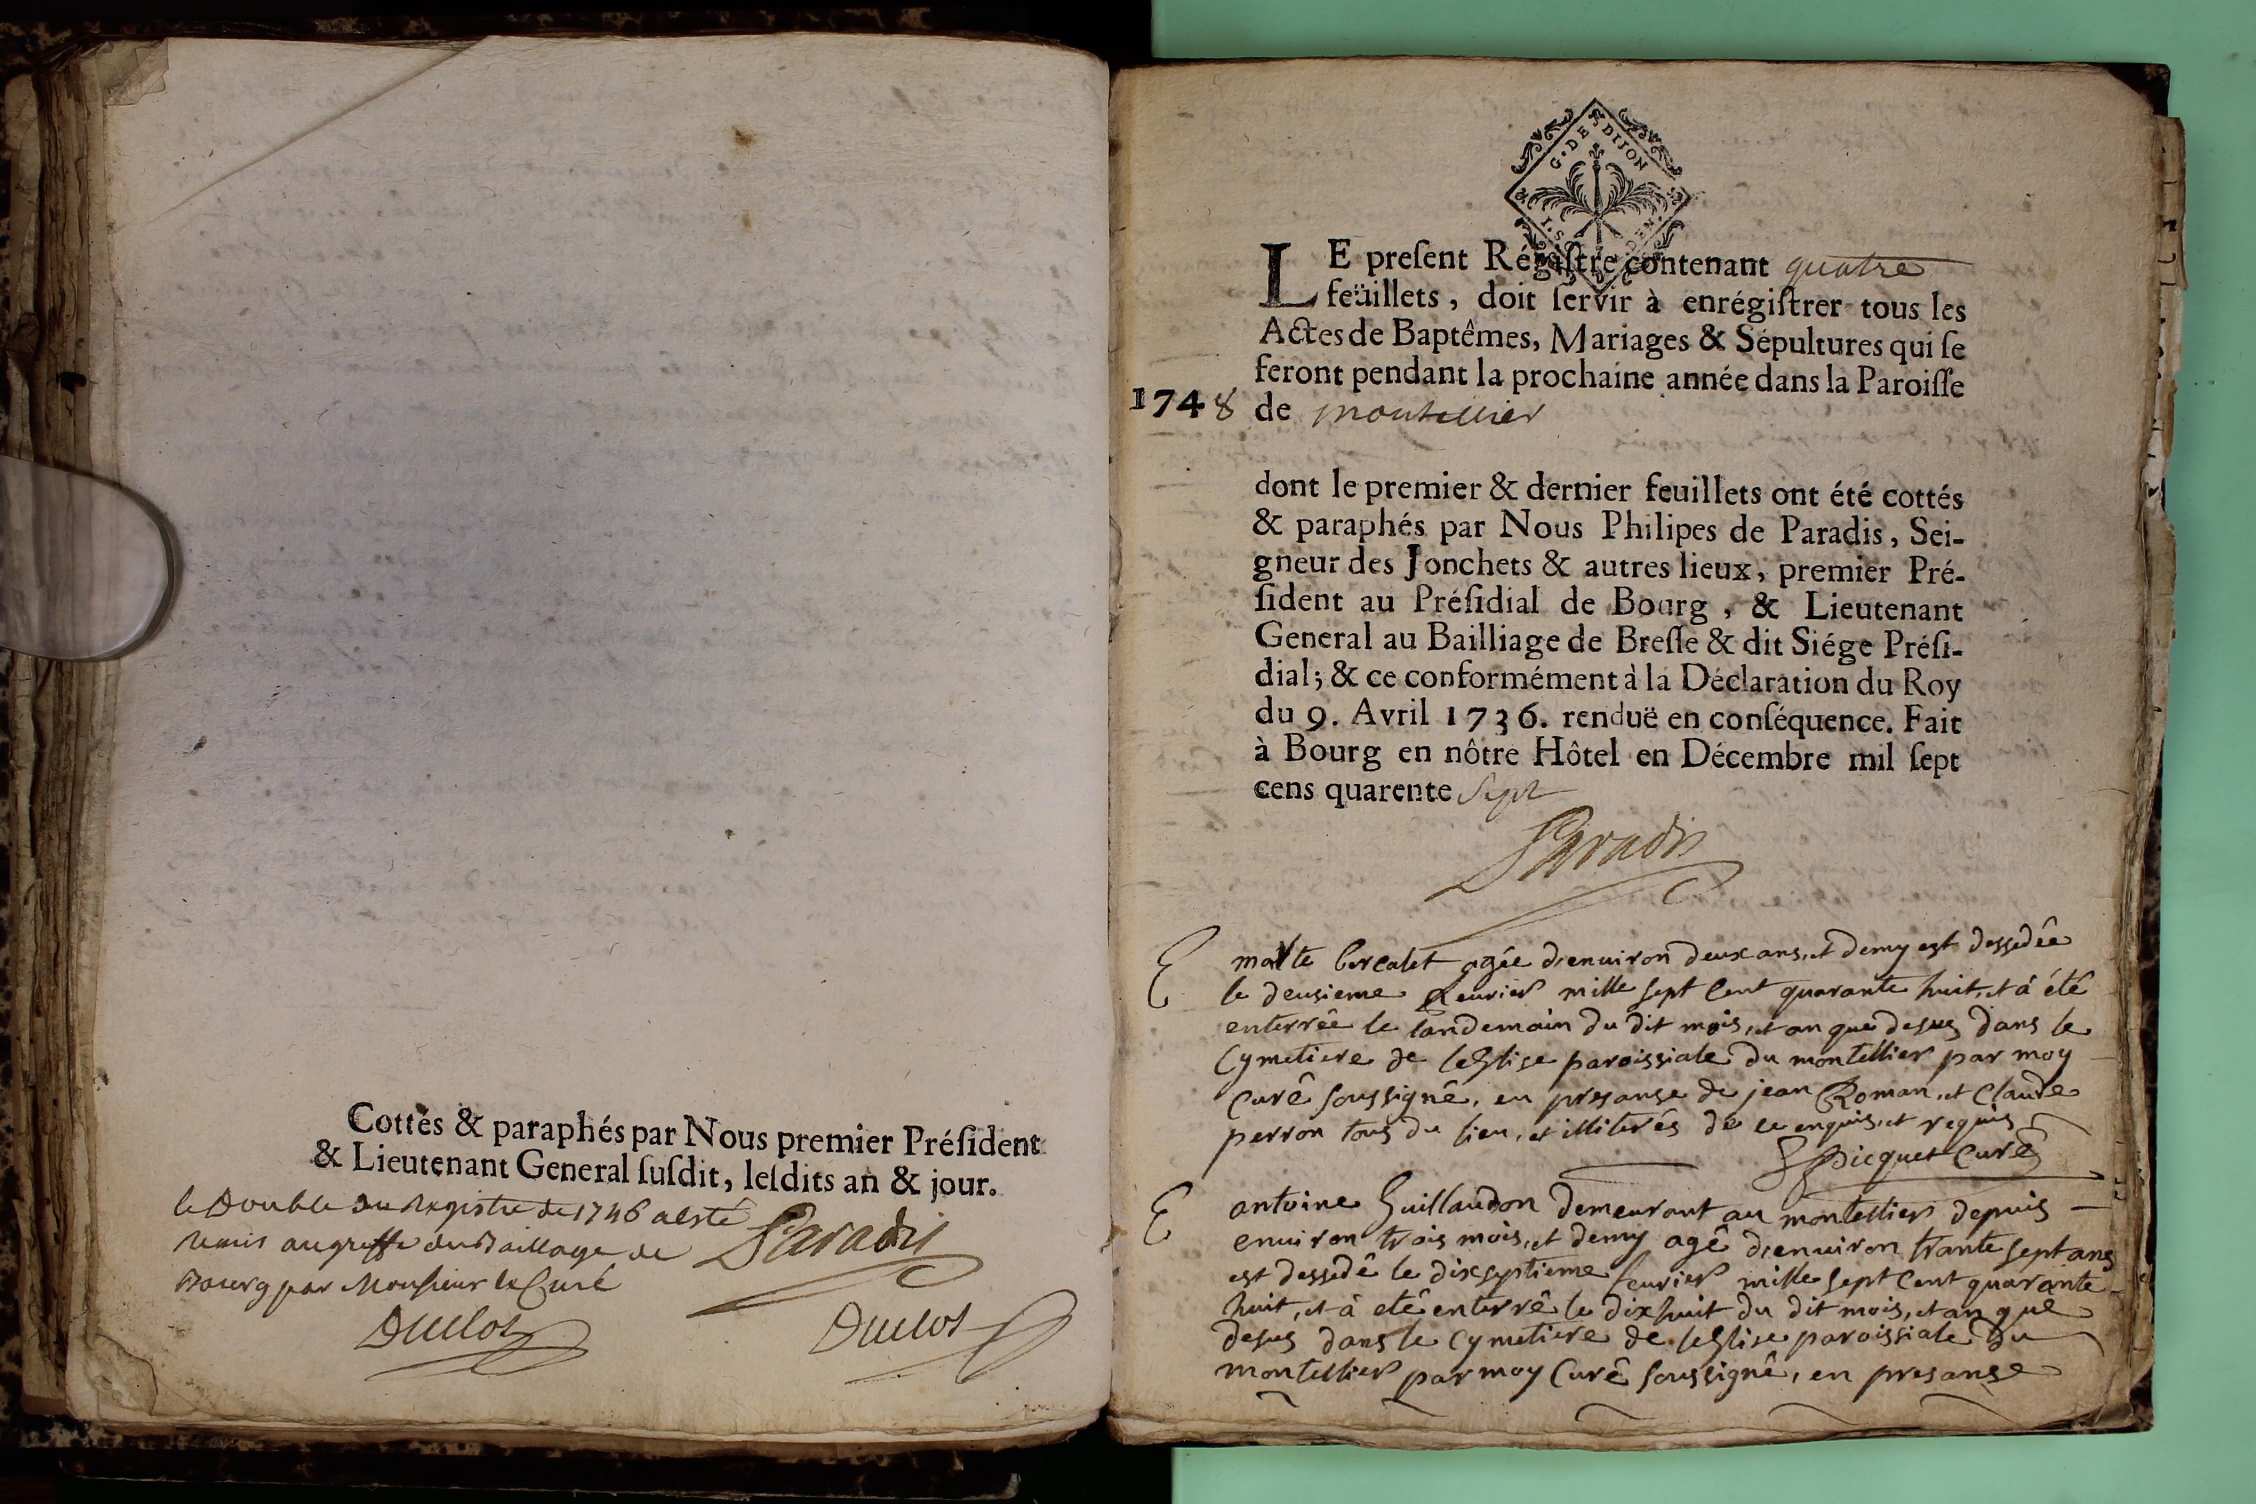 Cottés & paraphés par Nous premier Préſident
& Lieutenant General ſuſdit, leſdits an & jour.
le Double du Registre de 1746 a esté
remis au greffe du Bailliage de
Bourg par Monsieur le Curé
Paradis
Duclos
Duclos
G. DE DIJON
LE preſent Régiſtre contenant quatre
feüillets, doit ſervir à enrégiſtrer tous les
Actes de Baptêmes, Mariages & Sépultures qui ſe
feront pendant la prochaine année dans la Paroiſſe
1748 de montellier
dont le premier & dernier feuillets ont été cottés
& paraphés par Nous Philipes de Paradis, Sei-
gneur des Jonchets & autres lieux, premier Pré-
ſident au Préſidial de Bourg, & Lieutenant
General au Bailliage de Breſſe & dit Siége Préſi-
dial; & ce conformément à la Déclaration du Roy
du 9. Avril 1736. renduë en conſéquence. Fait
à Bourg en nôtre Hôtel en Décembre mil ſept
cens quarente sept
Paradis
agée d'enuiron deux ans, et demy est dessedée
le deusieme feurier mille sept Cent quarante huit, et à été
enterrée le landemain du dit mois, et an que desus dans le
Cymetiere de leglise paroissiale du montellier par moy
Curé soussigné, en presanse de jean Roman, et Claude
perron tous du lieu, et illiterés de ce enquis, et requis
Picquet Curé
antoine Guillaudon demeurant au montellier depuis
enuiron trois mois, et demy agé d'enuiron trante sept ans
est dessedé le dixseptieme feurier mille sept Cent quarante
huit, et à eté enterré le dixhuit du dit mois, et an que
desus dans le Cymetiere de leglise paroissiale du
montellier par moy Curé soussigné, en presanse